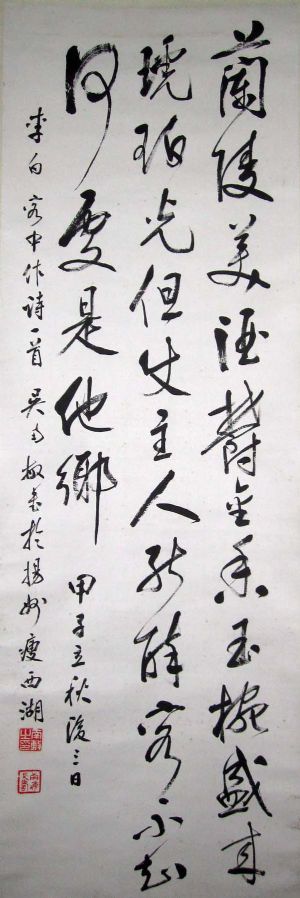 蘭陵美酒鬱金香玉椀盛來
琥珀光但使主人能醉客不知
何處是他鄉
甲子立秋後三日
李白客中作詩一首吳南敏書於揚州瘦西湖